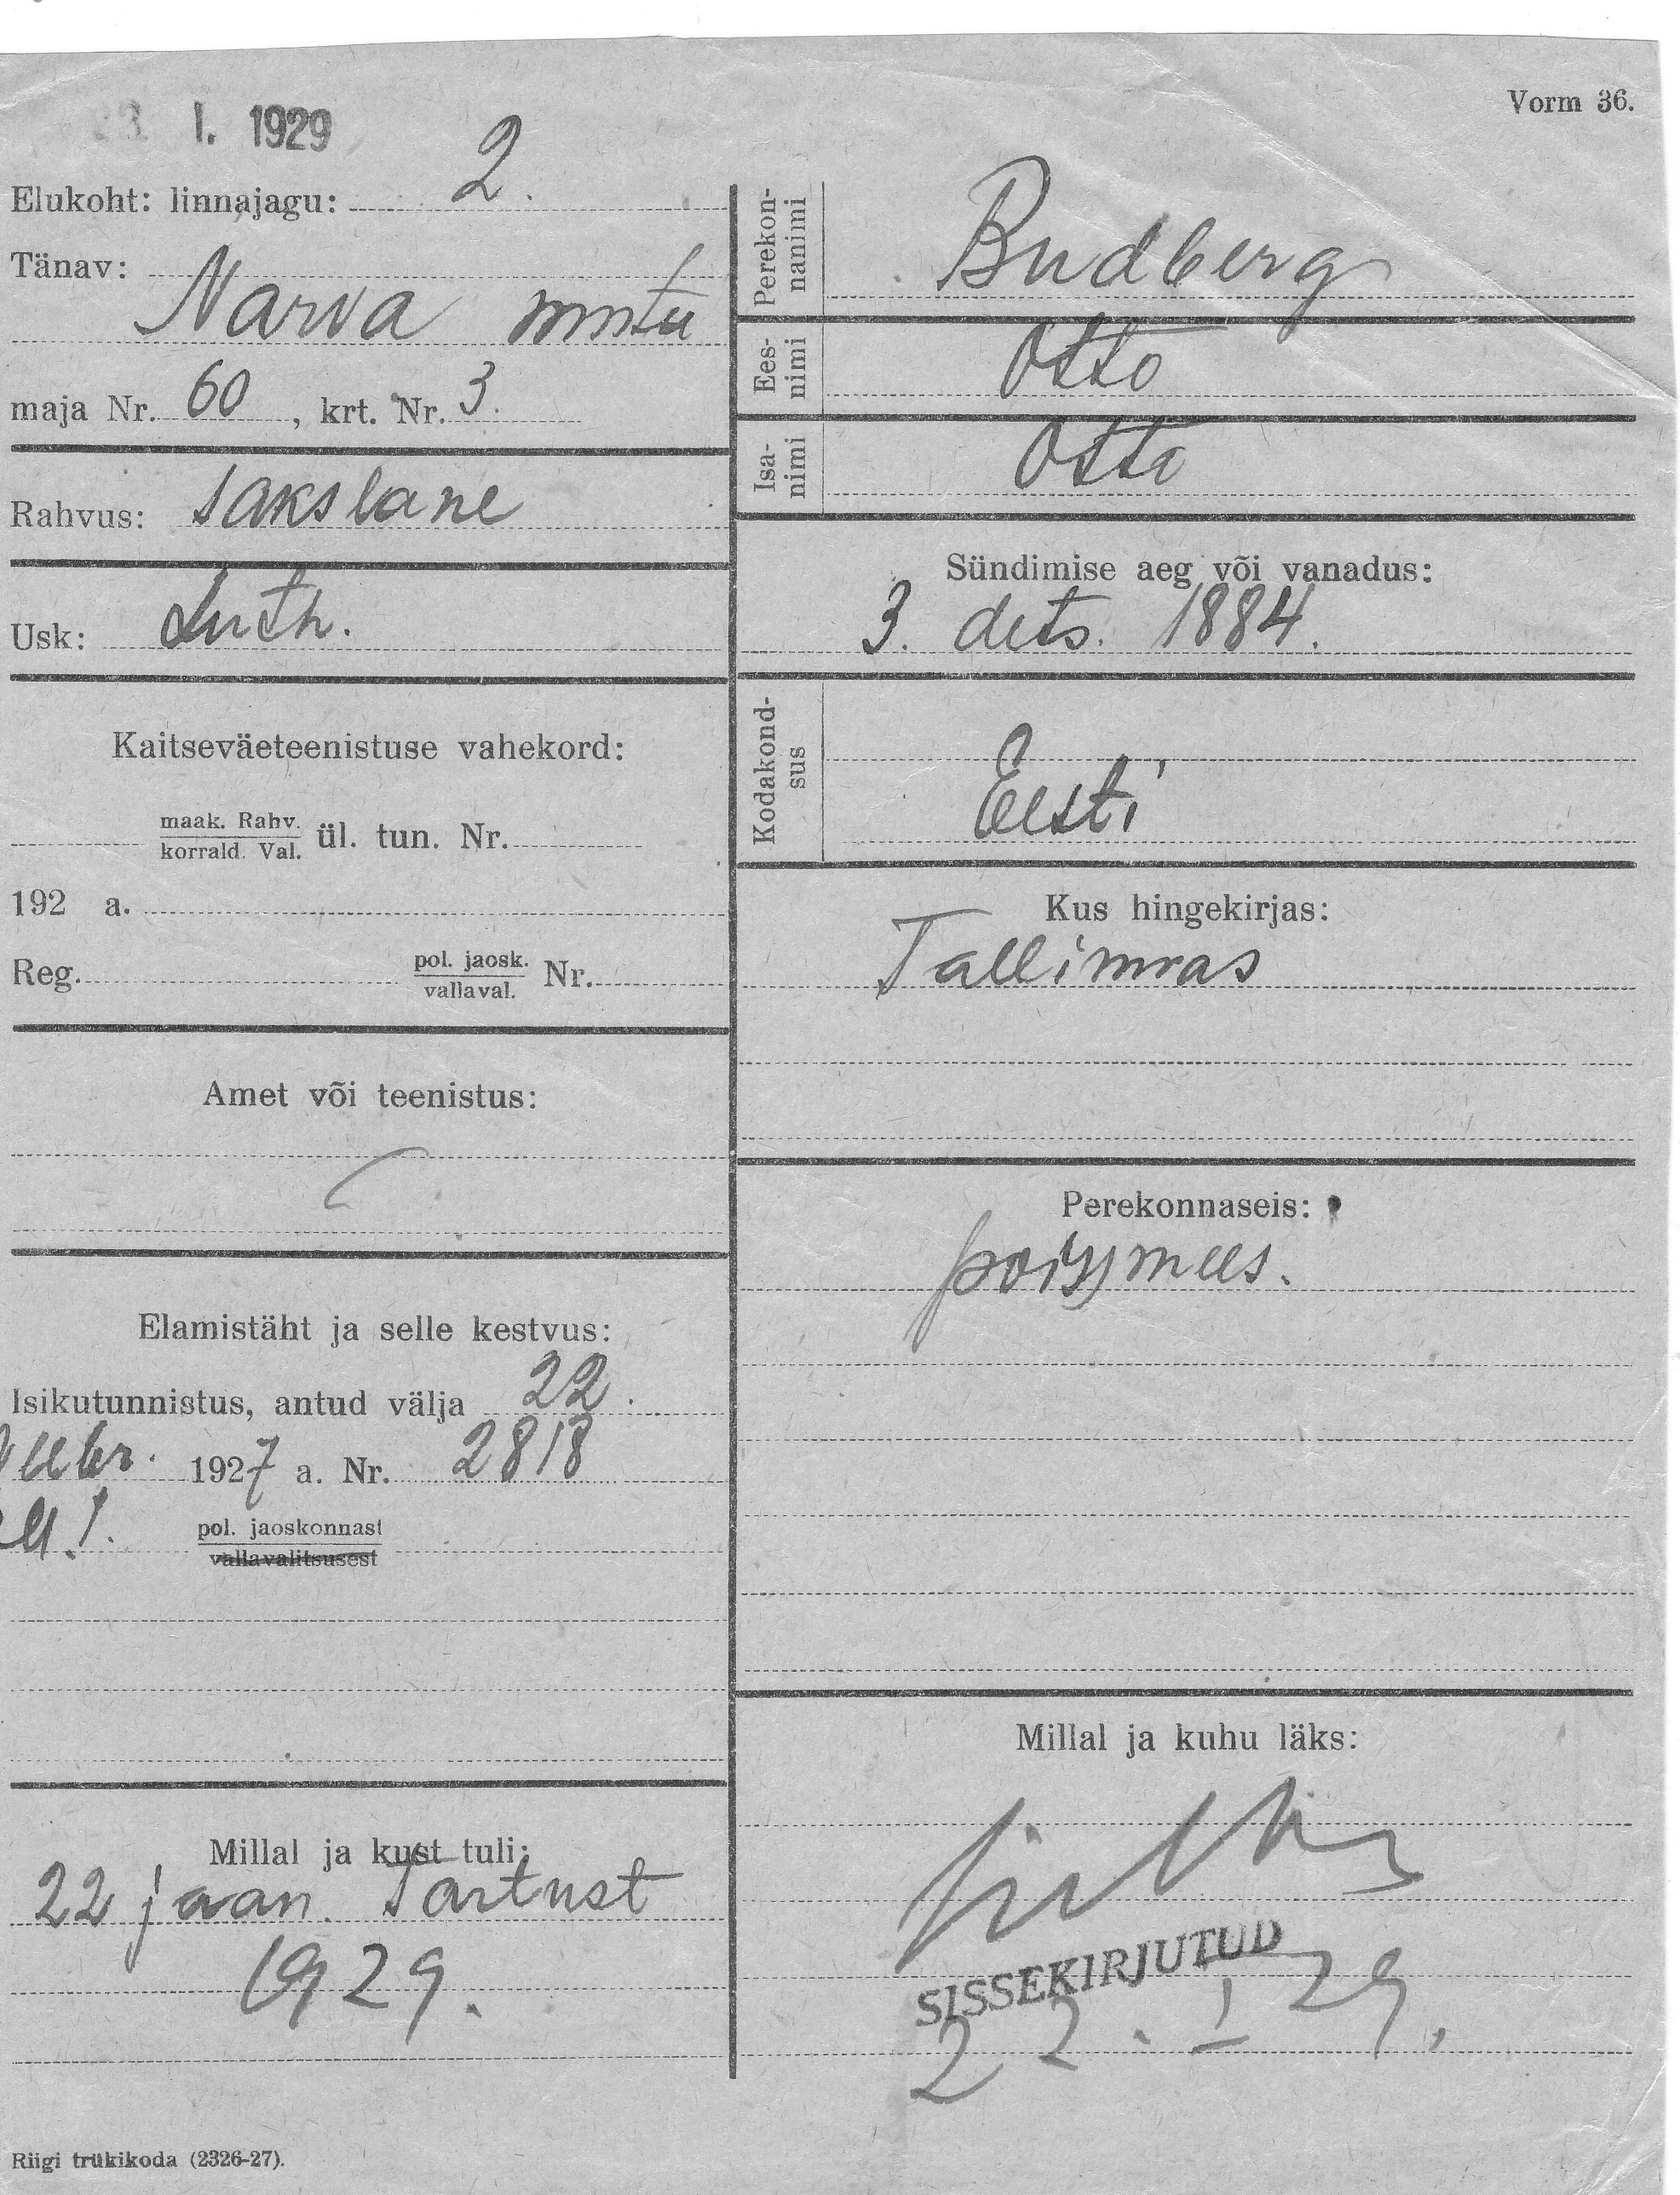 Vorm 36.
I. 1929
Elukoht: linnajagu: 2.
Tänav:
Narva mntu
maja Nr. 60, krt. Nr. 3.
Rahvus: sakslane
Usk: Luth.
Kaitseväeteenistuse vahekord:
maak. Rahv.
korrald. Val. ül. tun. Nr.
192 a.
Reg. pol. jaosk. Nr.
vallaval.
Amet või teenistus:
Elamistäht ja selle kestvus:
Isikutunnistus, antud välja 22.
1927 a. Nr. 2818
pol. jaoskonnast
vallavalitsusest
Millal ja kust tuli:
22 jaan. Tartust
1929.
Riigi trükikoda (2326-27).
Perekon-
nanimi
Budberg
Ees-
nimi
Otto
Isa-
nimi
Otto
Sündimise aeg või vanadus:
3. dets. 1884.
Kodakond-
sus
Eesti
Kus hingekirjas:
Tallinnas
Perekonnaseis:
poissmees.
Millal ja kuhu läks:
SISSEKIRJUTUD
22. I 29.